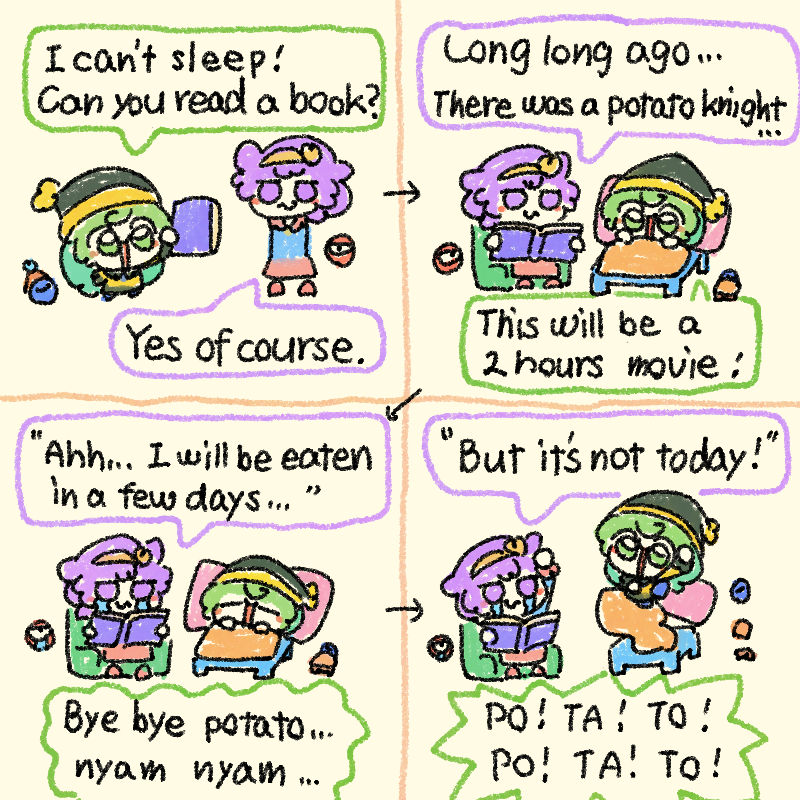 I can't sleep!
Can you read a book?
Yes of course.
Long long ago...
There was a potato knight
...
This will be a
2 hours movie!
"Ahh... I will be eaten
in a few days..."
Bye bye potato...
nyam nyam...
"But it's not today!"
PO! TA! TO!
PO! TA! TO!